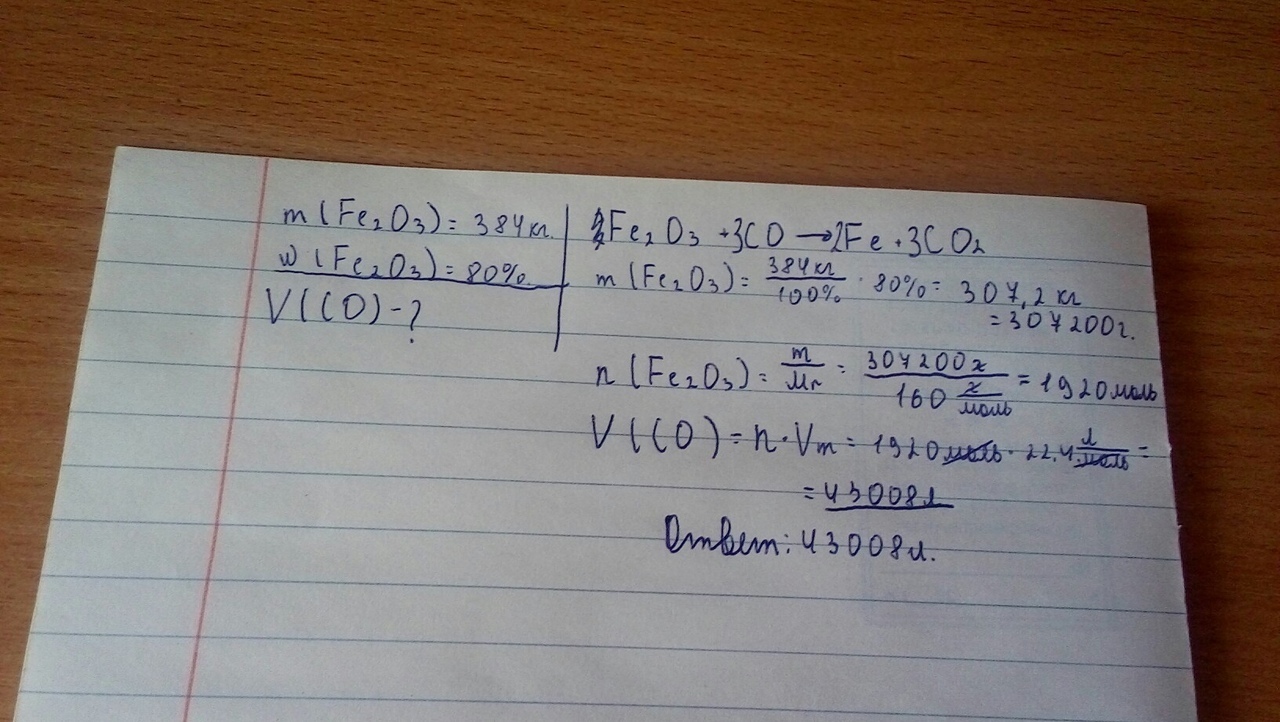 m(Fe₂O₃) = 384 кг
w(Fe₂O₃) = 80%
V(CO) - ?
Fe₂O₃ + 3CO → 2Fe + 3CO₂
m(Fe₂O₃) = 384 кг / 100% · 80% = 307,2 кг
= 307200 г.
n(Fe₂O₃) = m / Mr = 307200 г / 160 г/моль = 1920 моль
V(CO) = n · Vm = 1920 моль · 22.4 л/моль =
= 43008 л
Ответ: 43008 л.